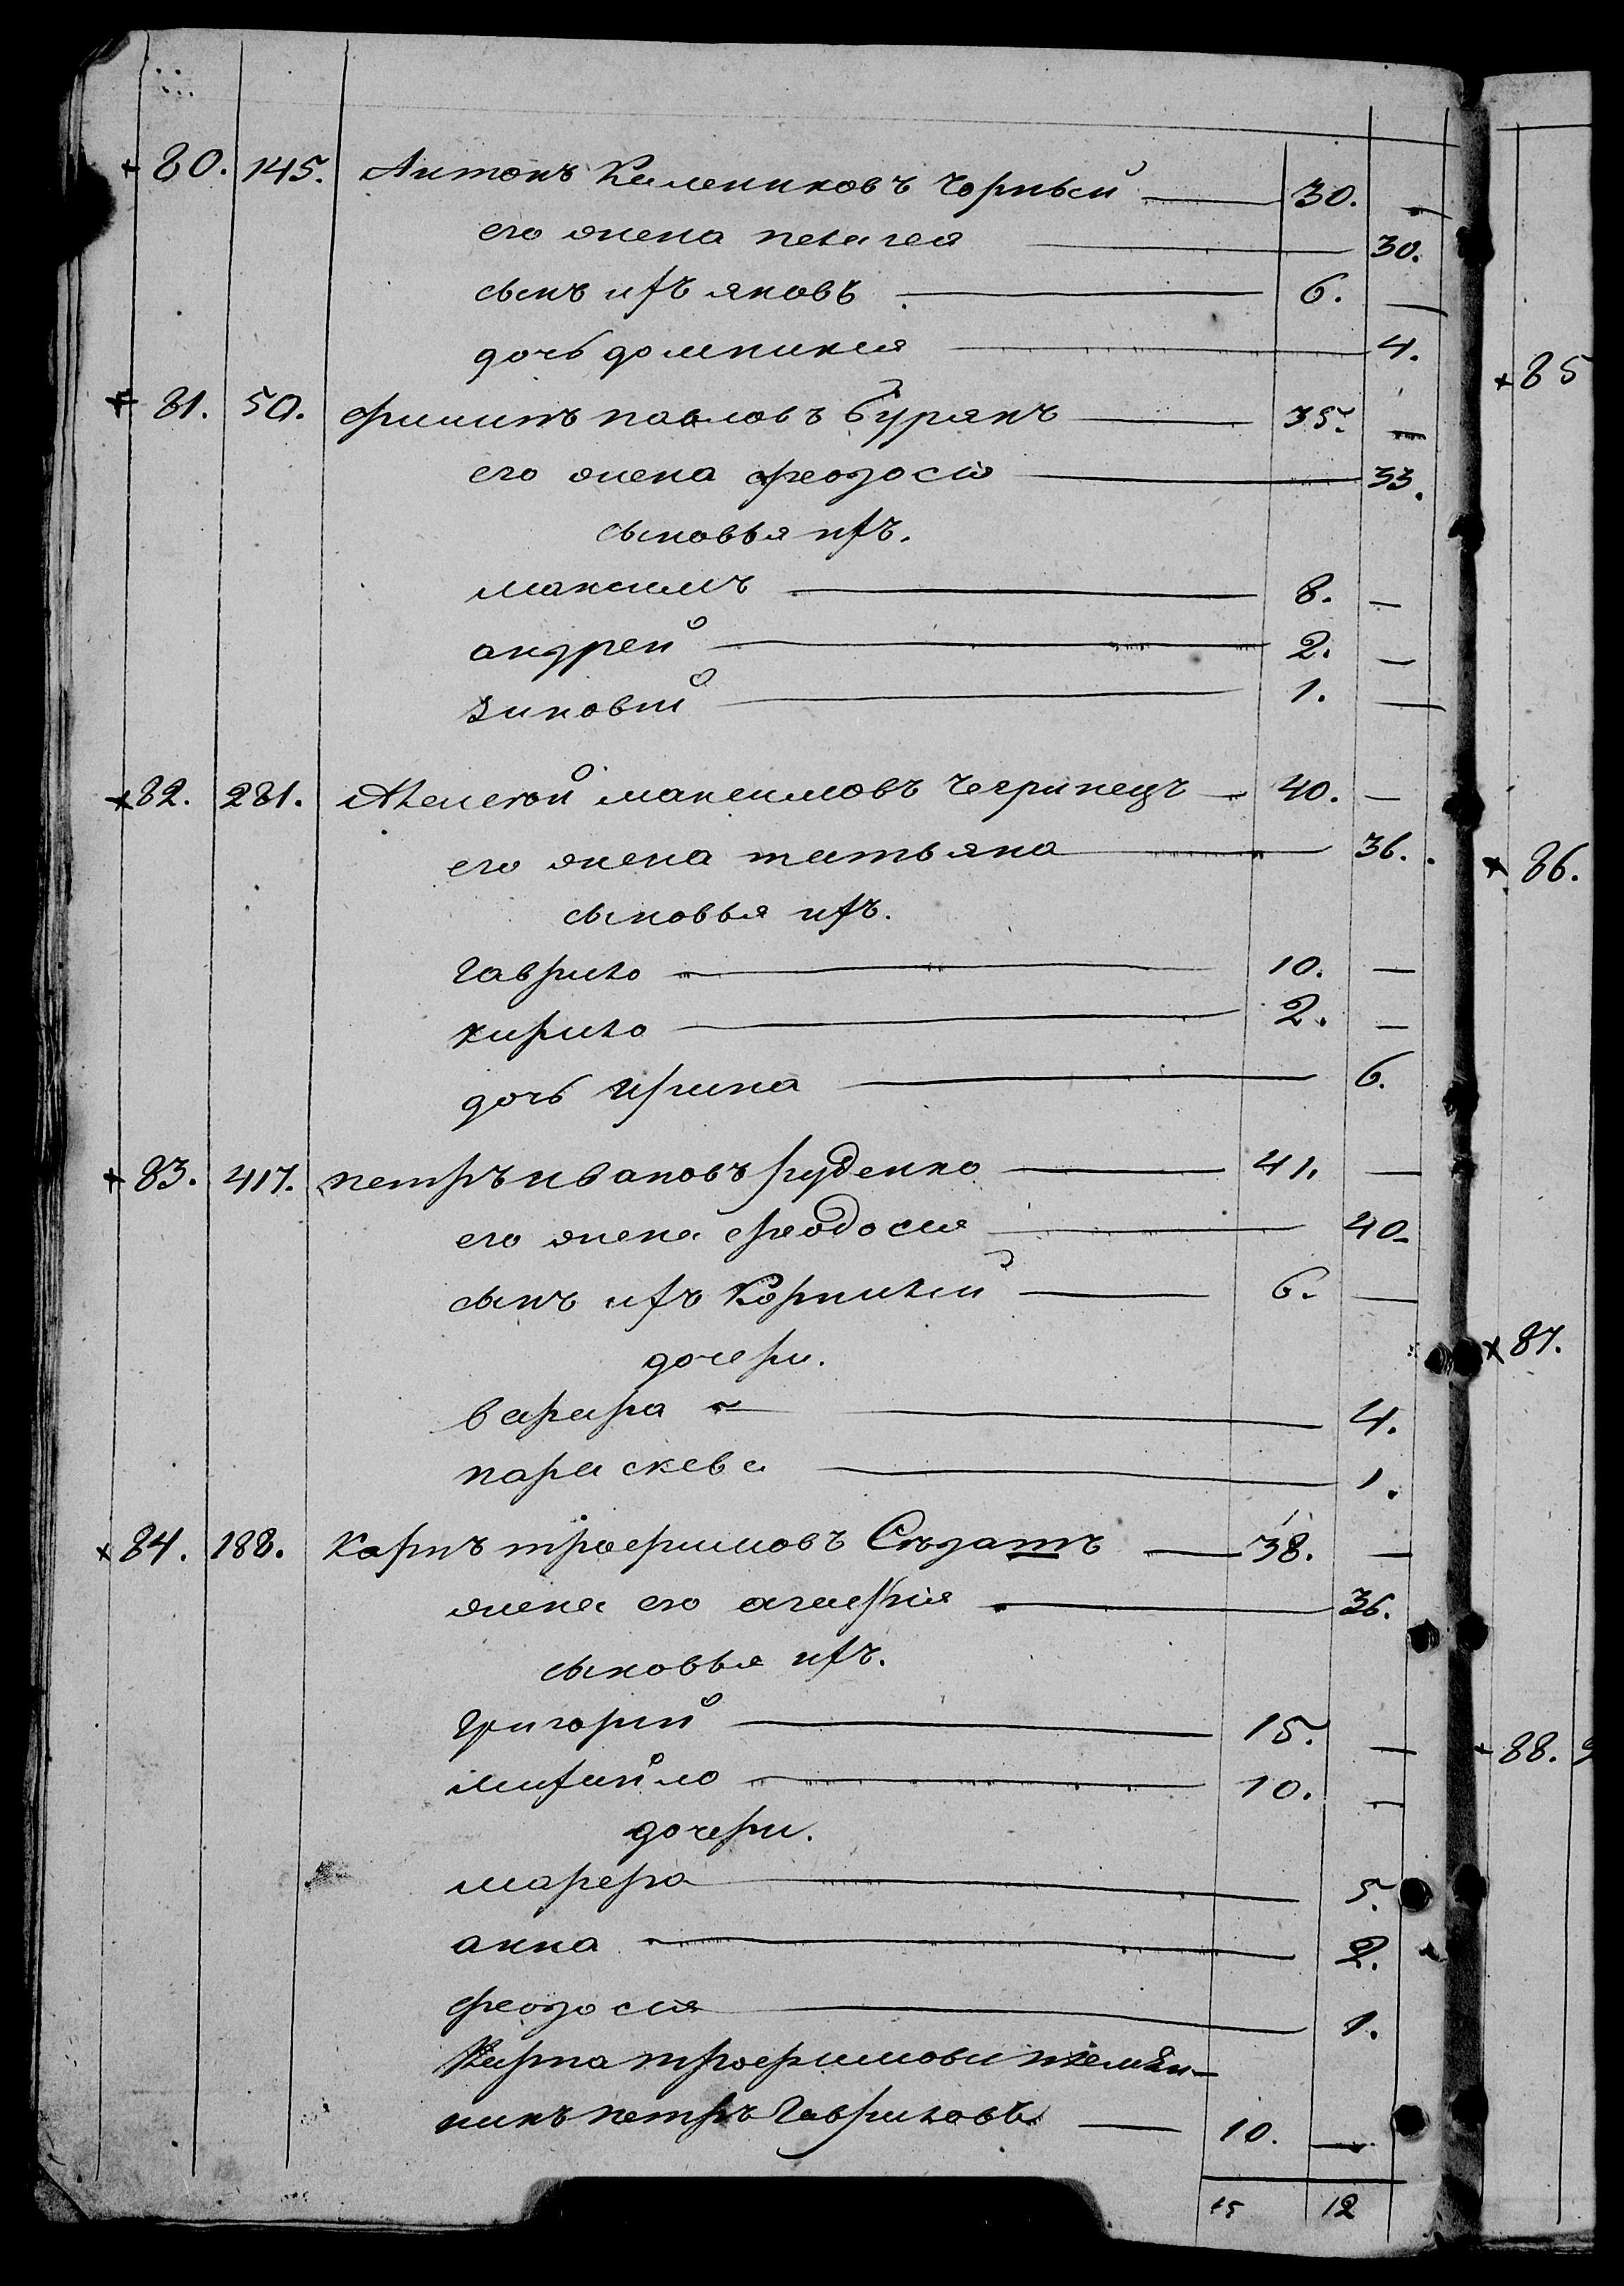 + 80. 145. Антонъ Калениковъ Чорный — 30. —
его жена пелагея — 30.
сынъ ихъ яковъ — 6. —
дочь домникия — 4.
+ 81. 50. филипъ павловъ Бурякъ — 35. —
его жена феодосія — 33.
сыновья ихъ.
максимъ — 8. —
андрей — 2. —
Зиновий — 1. —
+ 82. 281. Алексей максимовъ — 40. —
его жена татьяна — 36.
сыновья ихъ.
Гаврило — 10. —
кирило — 2. —
дочь Ирина — 6.
+ 83. 417. петръ ивановъ руденко — 41. —
его жена феодосия — 40.
сынъ ихъ Корнилий — 6. —
дочери.
варвара — 4.
параскева — 1.
+ 84. 188. Карпъ трофимовъ — 38. —
жена его агафия — 36.
сыновья ихъ.
Григорий — 15. —
михайло — 10. —
дочери.
марфа — 5.
анна — 2.
феодосия — 1.
Карпа трофимова племян-
никъ петръ Гавриловъ — 10. —
15 12
+ 85
+ 86.
+ 87.
+ 88.